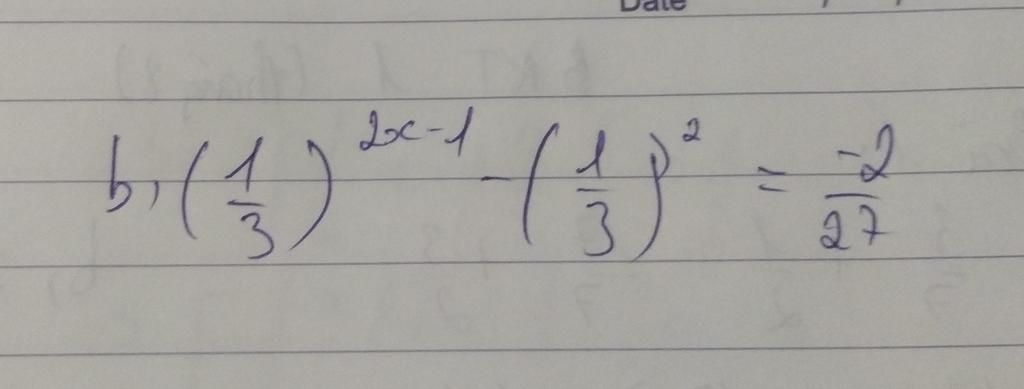 Date
b, (1/3)^{2x-1} - (1/3)^2 = -2/27